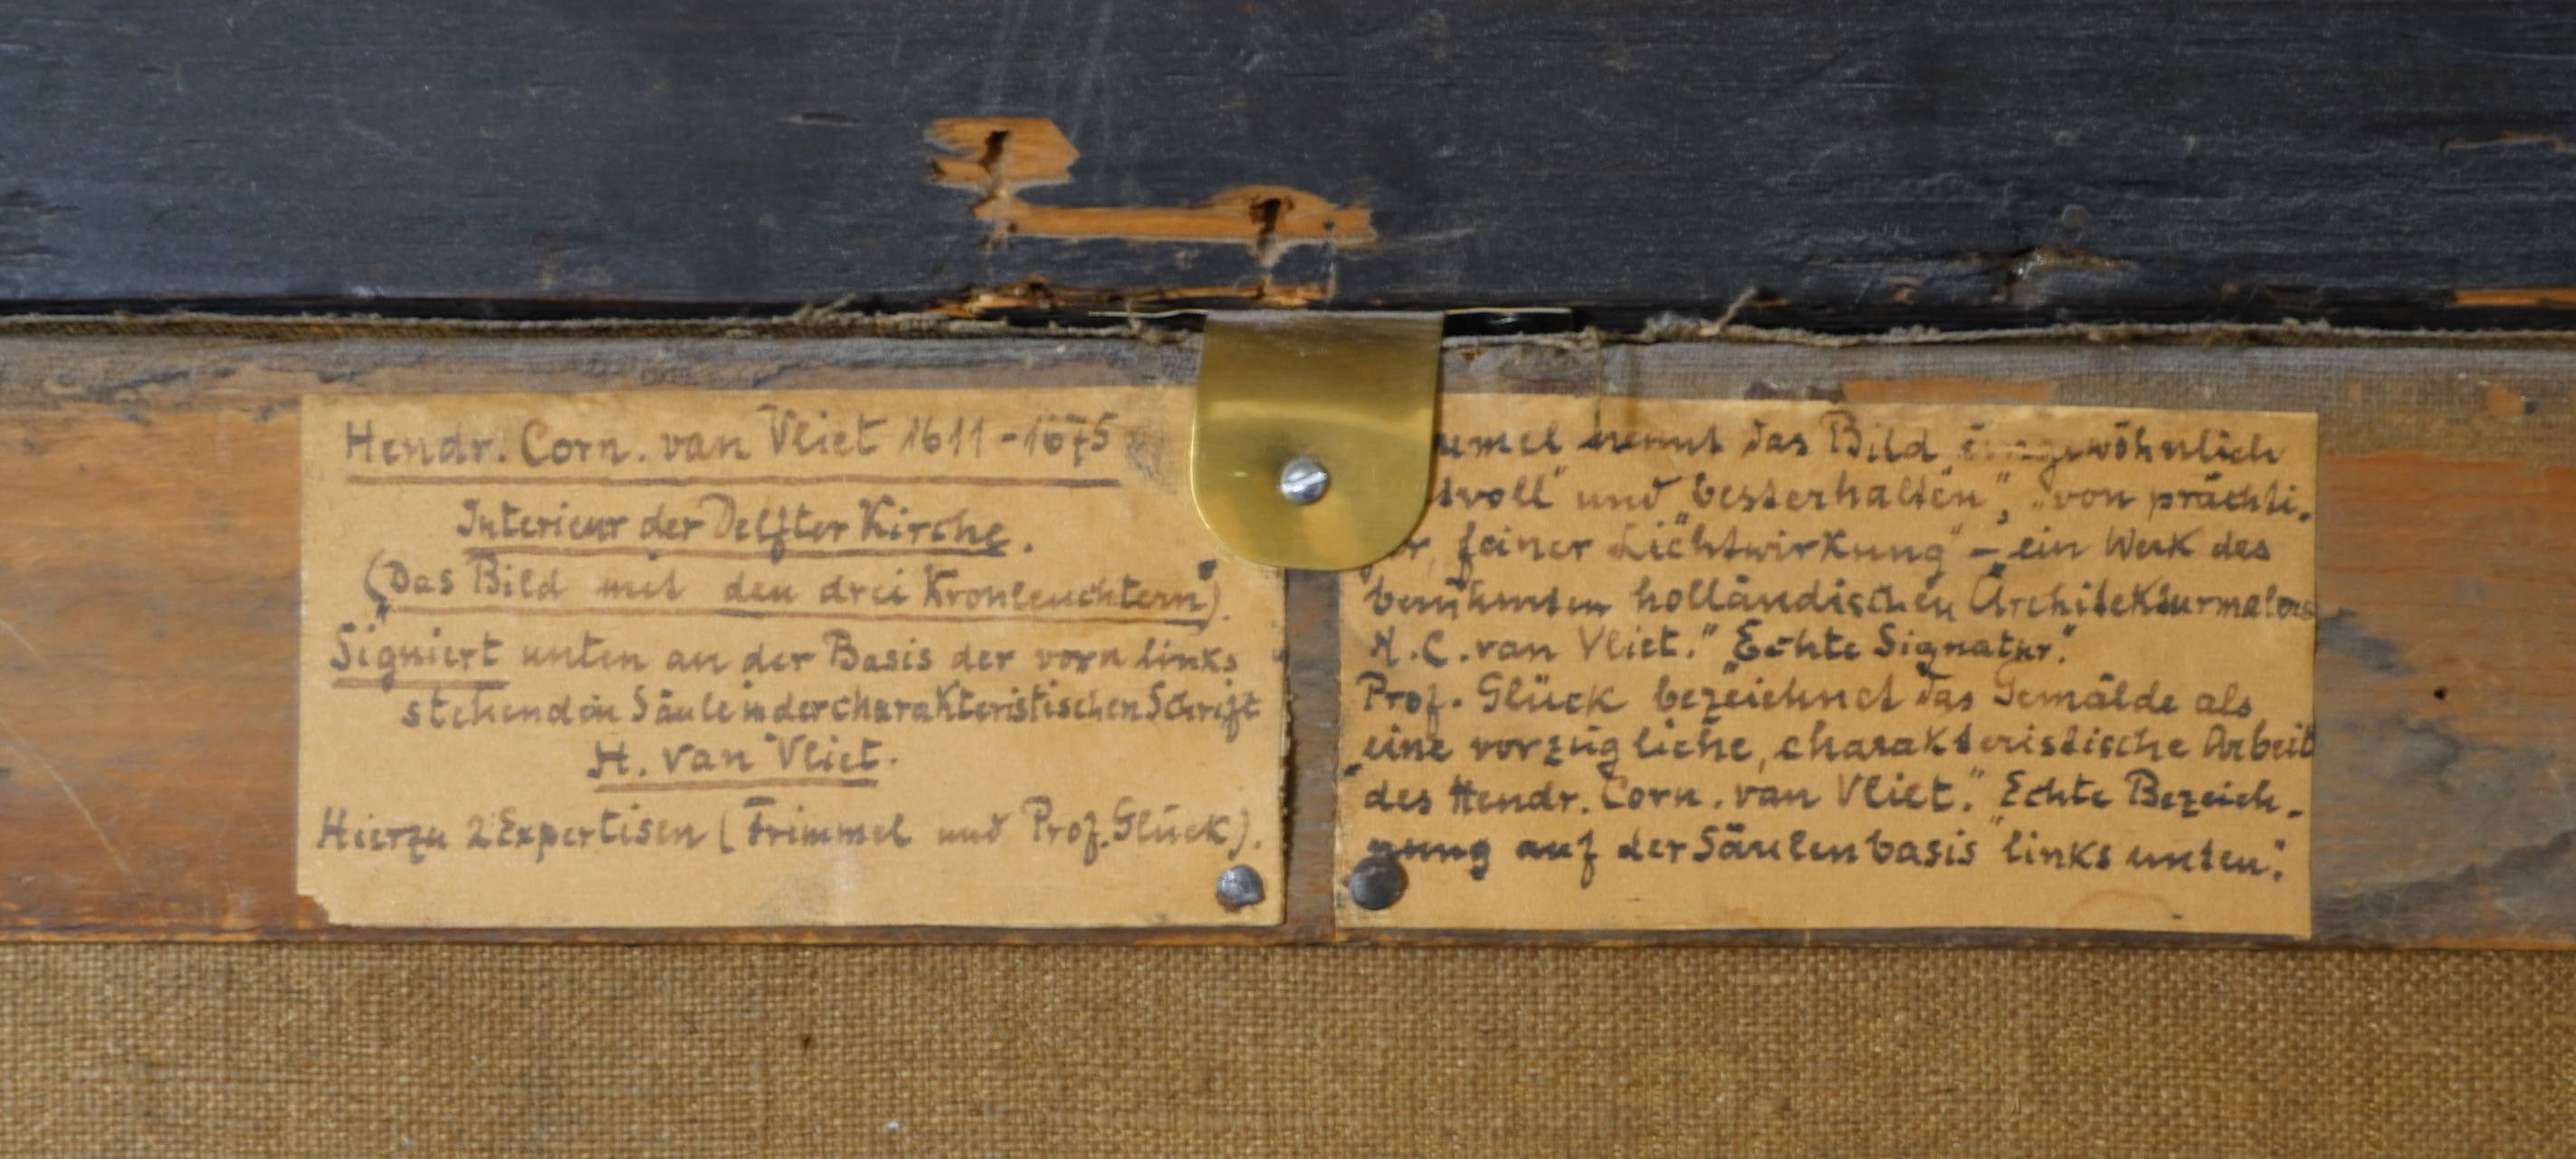 Hendr. Corn. van Vliet 1611-1675
Interieur der Delfter Kirche.
("Das Bild mit den drei Kronleuchtern").
Signiert unten an der Basis der vorn links
stehenden Säule in der charakteristischen Schrift
H. van Vliet.
Hierzu 2 Expertisen (Frimmel und Prof. Glück).
nennt das Bild
und "besterhalten", "von prächti-
feiner Lichtwirkung" - ein Werk des
berühmten holländischen Architekturmalers
H. C. van Vliet." "Echte Signatur."
Prof. Glück bezeichnet das Gemälde als
"eine vorzügliche, charakteristische Arbeit
des Hendr. Corn. van Vliet." "Echte Bezeich-
nung auf der Säulenbasis links unten."